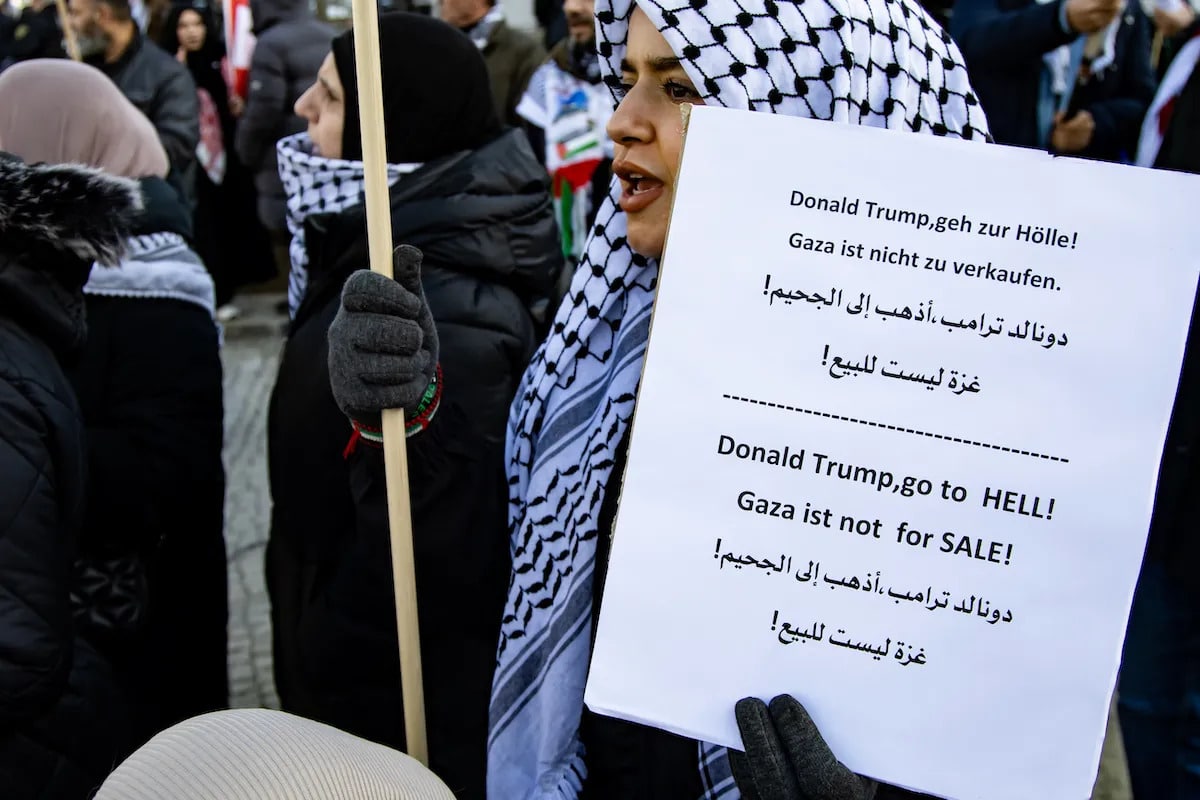 Donald Trump,geh zur Hölle!
Gaza ist nicht zu verkaufen.
دونالد ترامب،أذهب إلى الجحيم!
غزة ليست للبيع!
Donald Trump,go to HELL!
Gaza ist not for SALE!
دونالد ترامب،أذهب إلى الجحيم!
غزة ليست للبيع!